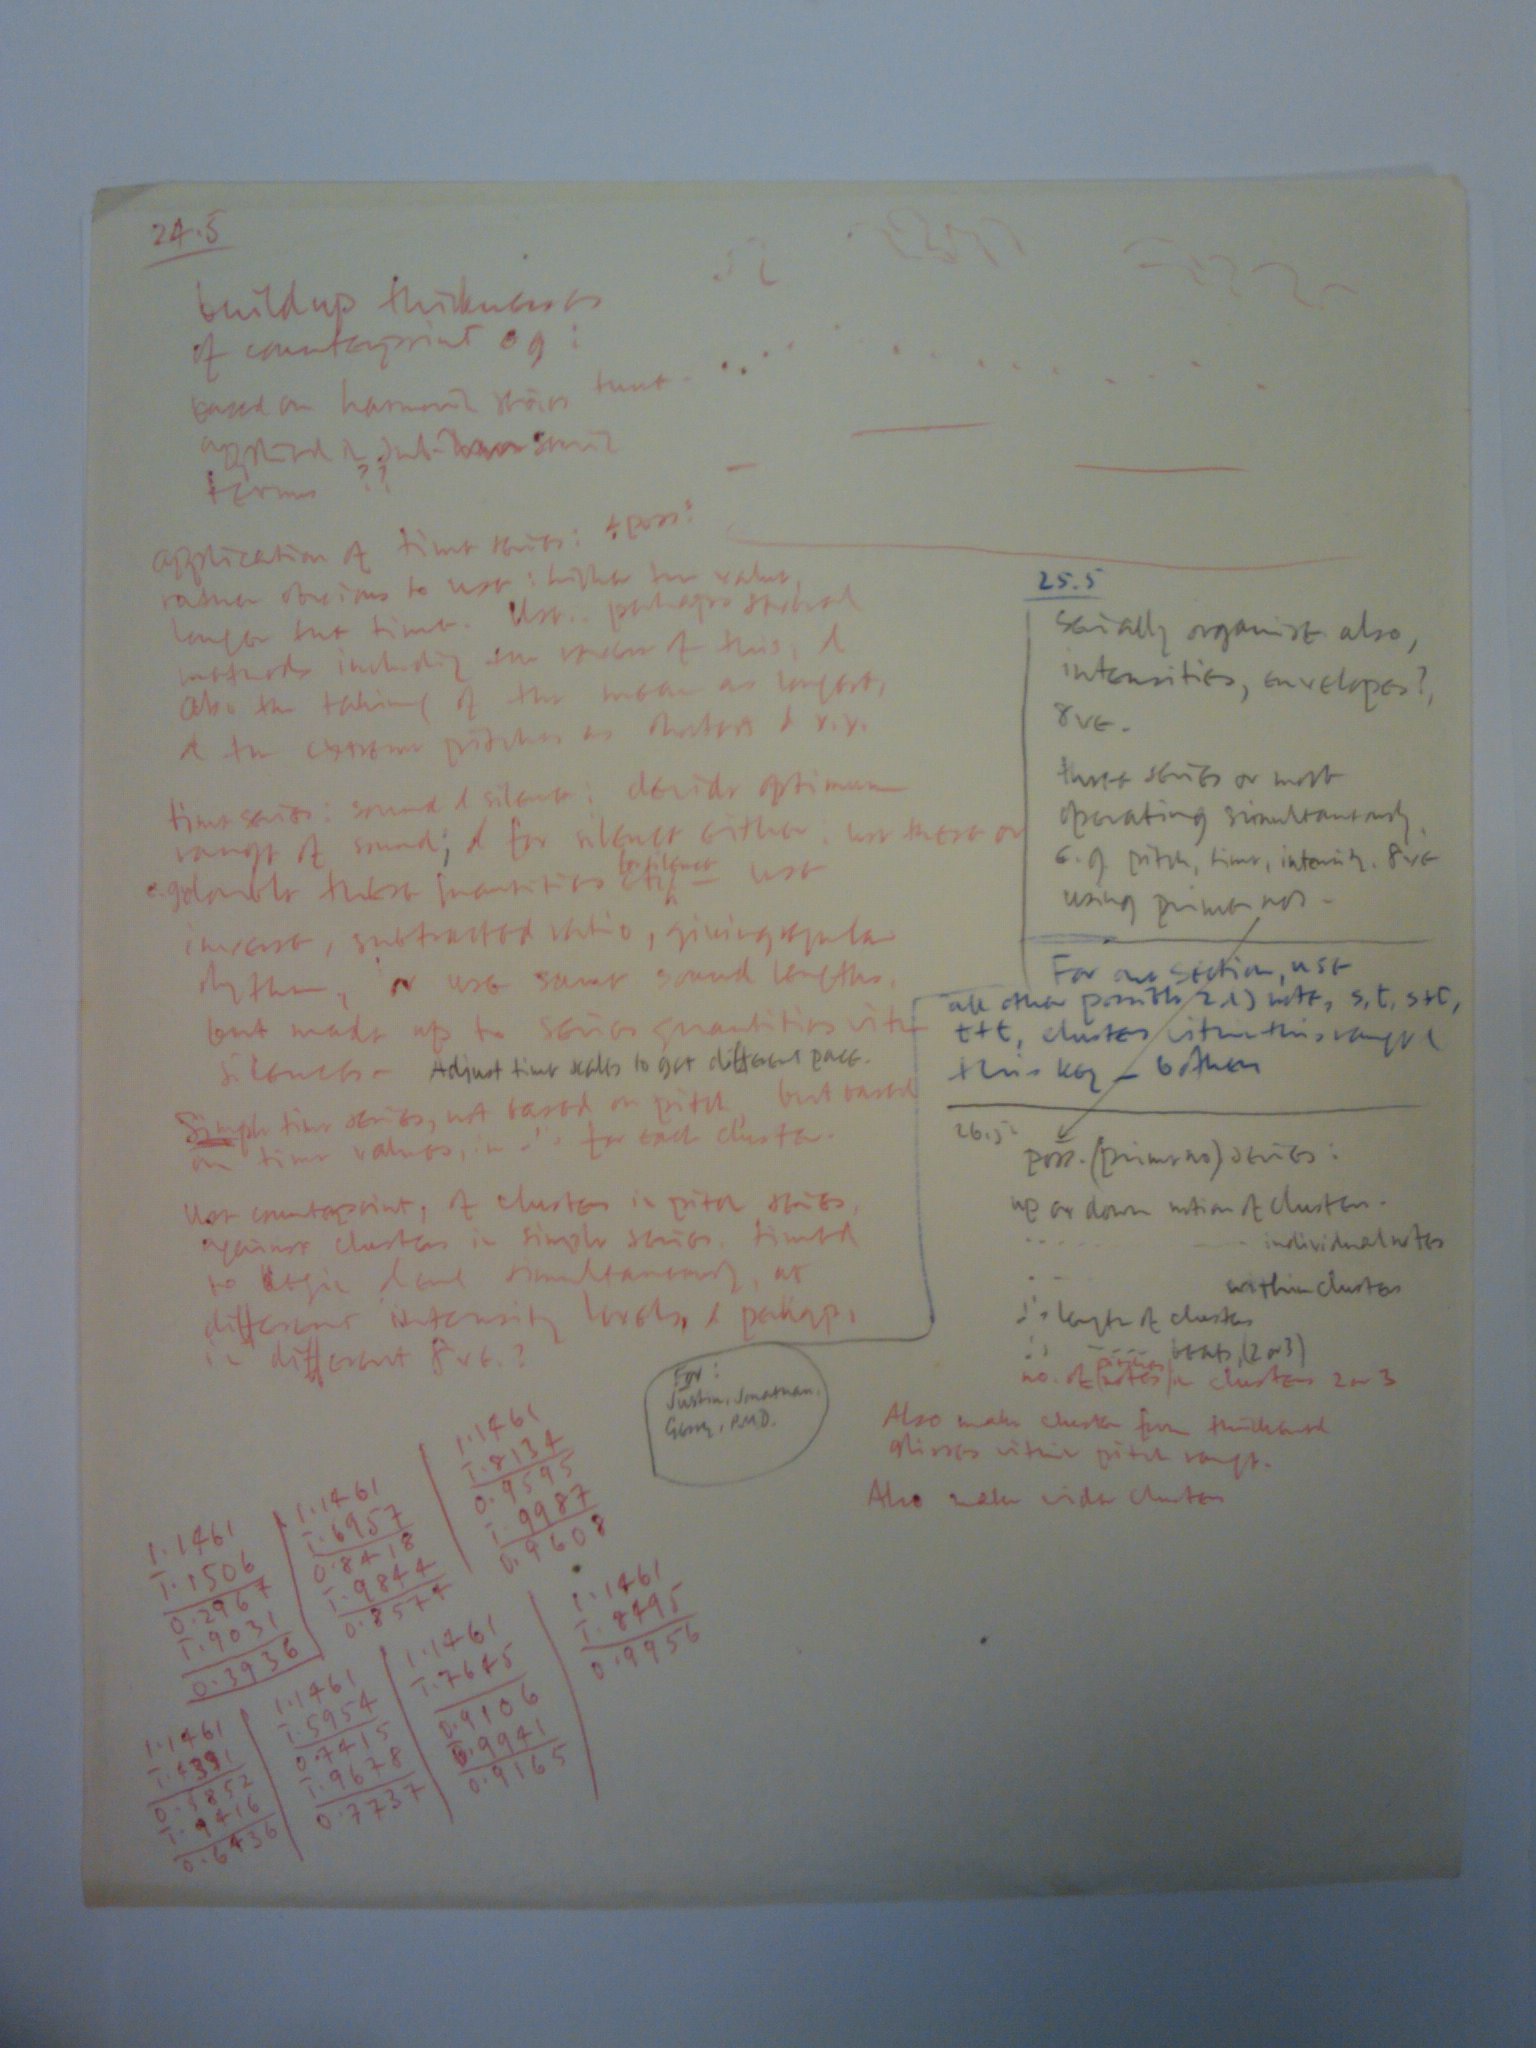 24.5
build up thicknesses
of counterpoint eg:
based on harmonic series time
applied in sub-harmonic
terms ??
application of time series: + poss:
rather obvious to use: higher the value,
longer the time. Use .. perhaps several
methods including the reverse of this, &
also the taking of the mean as longest,
& the extreme pitches as shortest & v.v.
time series: sound & silence: decide optimum
range of sound; & for silence either: use these or
e.g. double these quantities for silence use
inverse, subtracted ratio, giving regular
rhythm, or use same sound lengths,
but made up to series quantities with
silences. Adjust time scales to get different pace.
Simple time series, not based on pitch, but based
on time values, in for each cluster.
Use counterpoint, of clusters in pitch series,
against clusters in simple series. timed
to begin & end simultaneously, at
different intensity levels, & perhaps,
in different 8ve.?
25.5
Serially organise also,
intensities, envelopes?,
8ve.
these series or most
operating simultaneously
e.g. pitch, time, intensity, 8ve
using prime nos.
For one section, use
all other possible note, s, t, s+t,
t+t, clusters within this range &
this key – 6 other
26.5
poss. (prime no) series:
up or down motion of clusters.
individual notes
within clusters
length of clusters
beats, (2 or 3)
pitches
no. of (notes) in clusters 2 or 3
Also make cluster from thickened
glisses within pitch range.
Also make wider clusters
For:
Justin, Jonathan,
P.M.D.
1.1461
1.8134
0.9595
1.9987
0.9608
1.1461
1.6957
0.8418
1.9844
0.8577
1.1461
1.1506
0.2967
1.9031
0.3936
1.1461
1.8495
0.9956
1.1461
1.7645
0.9106
0.9941
0.9165
1.1461
1.5954
0.7415
1.9678
0.7737
1.1461
1.4391
0.5852
1.9416
0.6436